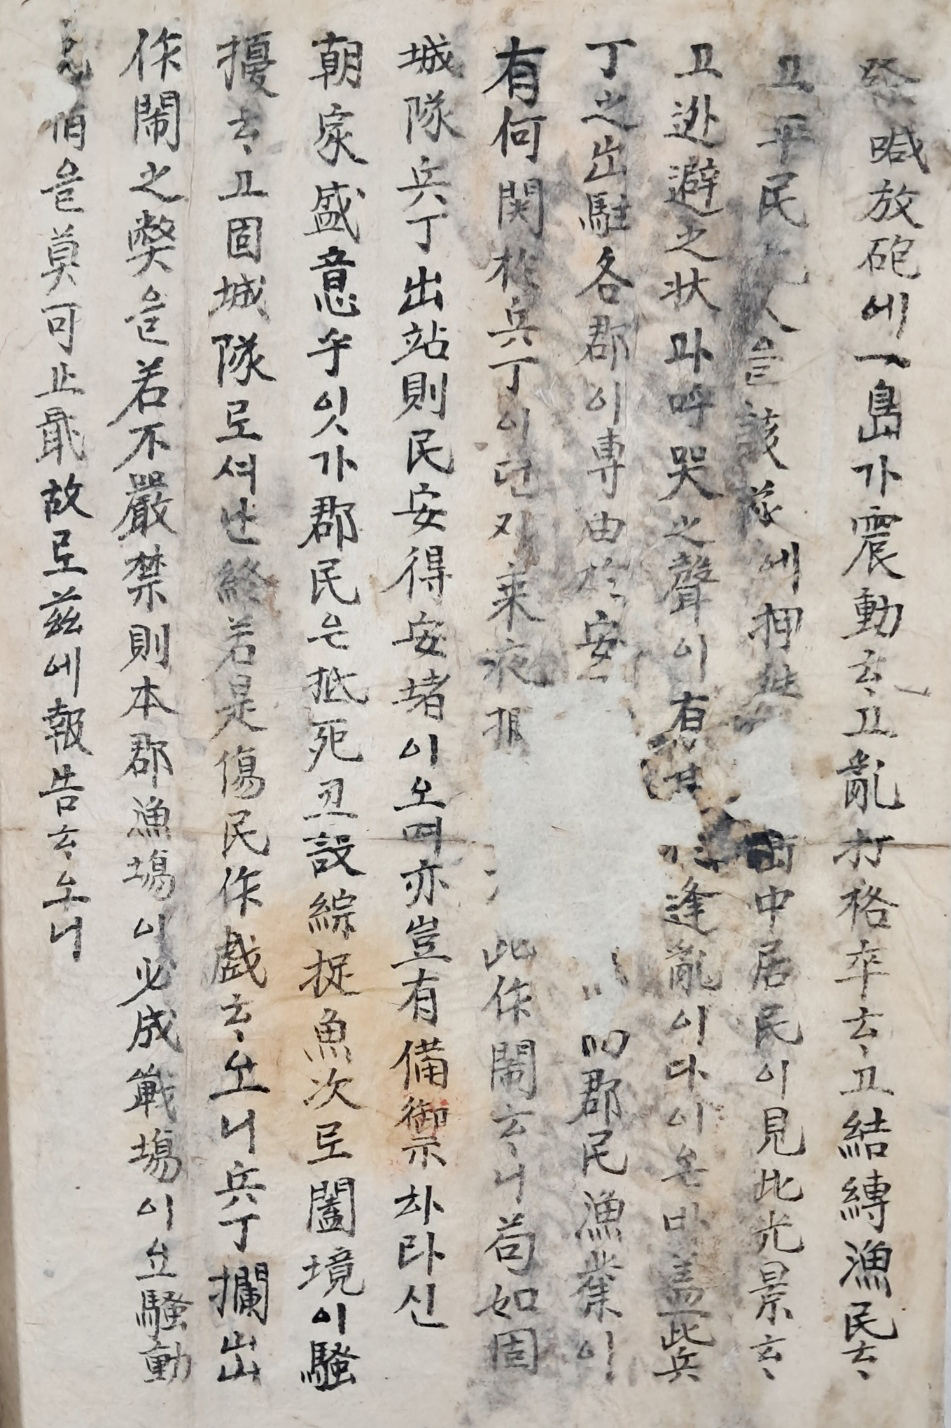 喊放砲에一島가震動ᄒᆞ고亂打格卒ᄒᆞ고結縛漁民ᄒᆞ
고平民 人을該隊에押 中居民이見此光景ᄒᆞ
고逊避之状과呼哭之聲이有 逢亂이다이온바盖此兵
丁之出駐各郡이專由於安 郡民漁業이
有何関於兵丁이단지来 此作鬧ᄒᆞ니苟如固
城隊兵丁出站則民安得安堵이오며亦豈有備禦하라신
朝家盛意乎잇가郡民은抵死丑設綜捉魚次로闔境이騷
擾ᄒᆞ고固城隊로셔난終若是傷民作戱ᄒᆞ오니兵丁攔出
作鬧之弊을若不嚴禁則本郡漁塲이必成戰塲이오騷動
을莫可止戢故로玆에報告ᄒᆞ오니